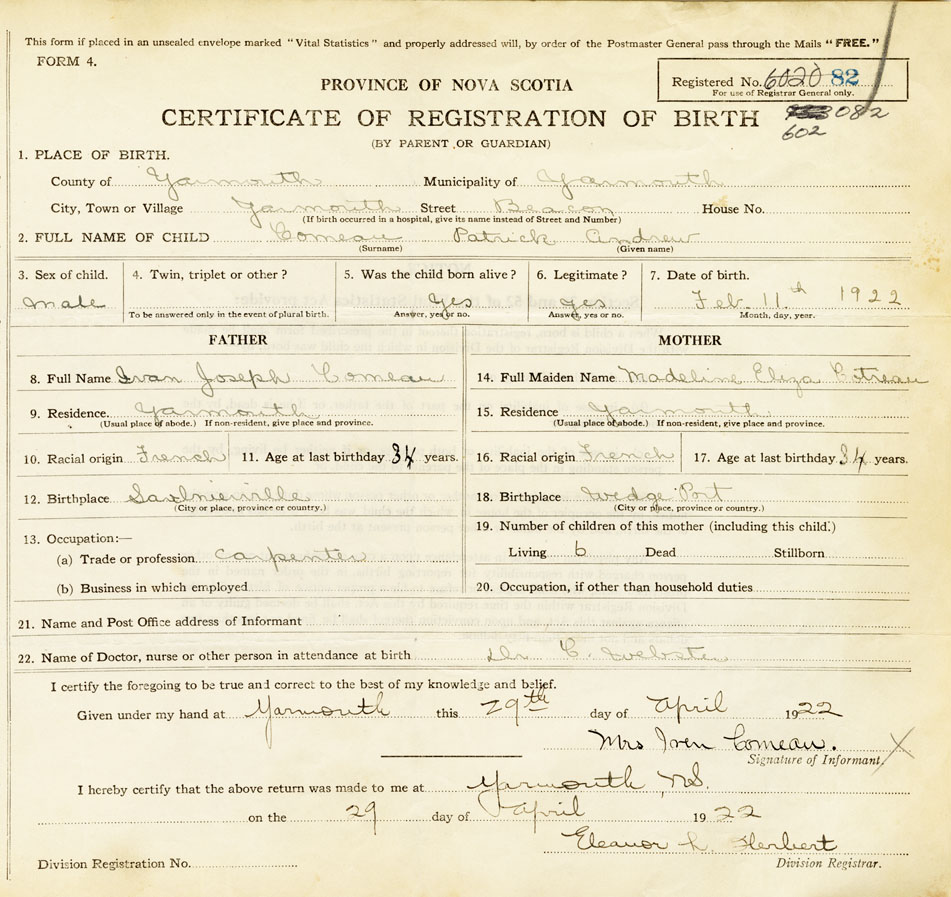 This form if placed in an unsealed envelope marked "Vital Statistics" and properly addressed will, by order of the Postmaster General pass through the Mails "FREE."
FORM 4.
Registered No. 6020 82
For use of Registrar General only.
PROVINCE OF NOVA SCOTIA
CERTIFICATE OF REGISTRATION OF BIRTH
082
602
(BY PARENT OR GUARDIAN)
1. PLACE OF BIRTH.
County of Yarmouth Municipality of Yarmouth
City, Town or Village Yarmouth Street Beacon House No.
(If birth occurred in a hospital, give its name instead of Street and Number)
2. FULL NAME OF CHILD Comeau Patrick Andrew
(Surname) (Given name)
3. Sex of child. 4. Twin, triplet or other? 5. Was the child born alive? 6. Legitimate? 7. Date of birth.
male yes yes Feb. 11th 1922
To be answered only in the event of plural birth. Answer, yes or no. Answer, yes or no. Month, day, year.
FATHER MOTHER
8. Full Name Ivan Joseph Comeau 14. Full Maiden Name Madeline Eliza Cotreau
9. Residence. Yarmouth 15. Residence Yarmouth
(Usual place of abode.) If non-resident, give place and province. (Usual place of abode.) If non-resident, give place and province.
10. Racial origin French 11. Age at last birthday 34 years. 16. Racial origin French 17. Age at last birthday. 34 years.
12. Birthplace Saulnierville 18. Birthplace Wedge Port
(City or place, province or country.) (City or place, province or country.)
19. Number of children of this mother (including this child.)
13. Occupation:—
(a) Trade or profession carpenter Living 6 Dead Stillborn
(b) Business in which employed 20. Occupation, if other than household duties
21. Name and Post Office address of Informant
22. Name of Doctor, nurse or other person in attendance at birth Dr C. Webster
I certify the foregoing to be true and correct to the best of my knowledge and belief.
Given under my hand at Yarmouth this 29th day of April 1922
Mrs Iven Comeau. X
Signature of Informant.
I hereby certify that the above return was made to me at Yarmouth, N.S.
on the 29 day of April 1922
Eleanor L. Herbert
Division Registration No. Division Registrar.